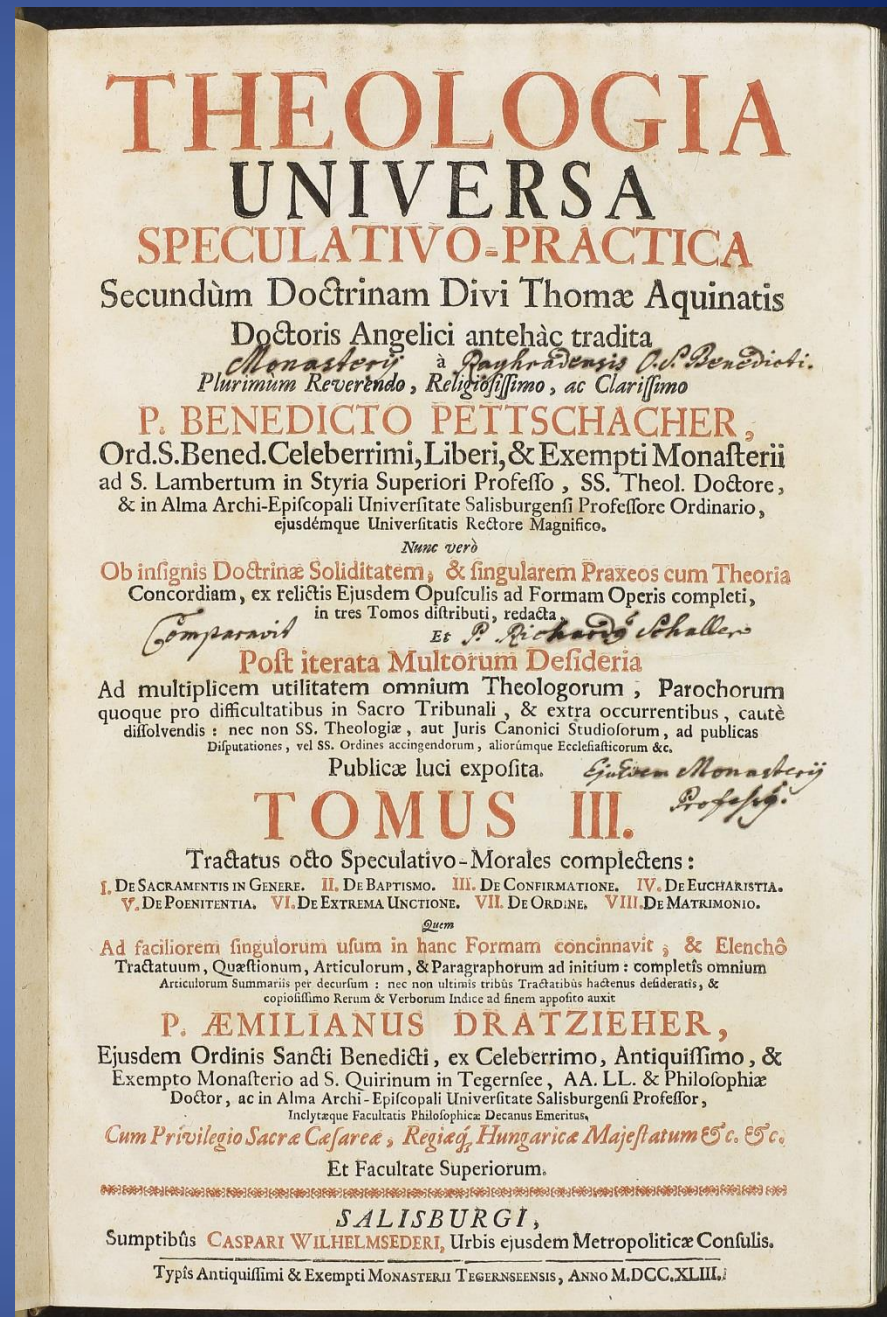 THEOLOGIA
UNIVERSA
SPECULATIVO=PRACTICA
Secundùm Doctrinam Divi Thomæ Aquinatis
Doctoris Angelici antehàc tradita
Monasterij à Rayhradensis O. S. Benedicti.
Plurimùm Reverendo, Religiosissimo, ac Clarissimo
P. BENEDICTO PETTSCHACHER,
Ord.S.Bened.Celeberrimi, Liberi, & Exempti Monasterii
ad S. Lambertum in Styria Superiori Professo, SS. Theol. Doctore,
& in Alma Archi-Episcopali Universitate Salisburgensi Professore Ordinario,
ejusdémque Universitatis Rectore Magnifico.
Nunc verò
Ob insignis Doctrinæ Soliditatem, & singularem Praxeos cum Theoria
Concordiam, ex relictis Ejusdem Opusculis ad Formam Operis completi,
in tres Tomos distributi, redacta,
Comparavit Et P. Richardq Schaller
Post iterata Multorum Desideria
Ad multiplicem utilitatem omnium Theologorum, Parochorum
quoque pro difficultatibus in Sacro Tribunali, & extra occurrentibus, cautè
dissolvendis : nec non SS. Theologiæ, aut Juris Canonici Studiosorum, ad publicas
Disputationes, vel SS. Ordines accingendorum, aliorúmque Ecclesiasticorum &c.
Publicæ luci exposita. Ejusdem Monasterij
Professq.
TOMUS III.
Tractatus octo Speculativo-Morales complectens :
I. DE SACRAMENTIS IN GENERE. II. DE BAPTISMO. III. DE CONFIRMATIONE. IV. DE EUCHARISTIA.
V. DE POENITENTIA. VI. DE EXTREMA UNCTIONE. VII. DE ORDINE. VIII. DE MATRIMONIO.
Quem
Ad faciliorem singulorum usum in hanc Formam concinnavit, & Elenchô
Tractatuum, Quæstionum, Articulorum, & Paragraphorum ad initium : completîs omnium
Articulorum Summariis per decursum : nec non ultimis tribûs Tractatibûs hactenus desideratis, &
copiosissimo Rerum & Verborum Indice ad finem apposito auxit
P. ÆMILIANUS DRATZIEHER,
Ejusdem Ordinis Sancti Benedicti, ex Celeberrimo, Antiquissimo, &
Exempto Monasterio ad S. Quirinum in Tegernsee, AA. LL. & Philosophiæ
Doctor, ac in Alma Archi-Episcopali Universitate Salisburgensi Professor,
Inclytæque Facultatis Philosophicæ Decanus Emeritus.
Cum Privilegio Sacræ Cæsareæ, Regiæq́; Hungaricæ Majestatum &c. &c.
Et Facultate Superiorum.
SALISBURGI,
Sumptibûs CASPARI WILHELMSEDERI, Urbis ejusdem Metropoliticæ Consulis.
Typîs Antiquissimi & Exempti MONASTERII TEGERNSEENSIS, ANNO M.DCC.XLIII.